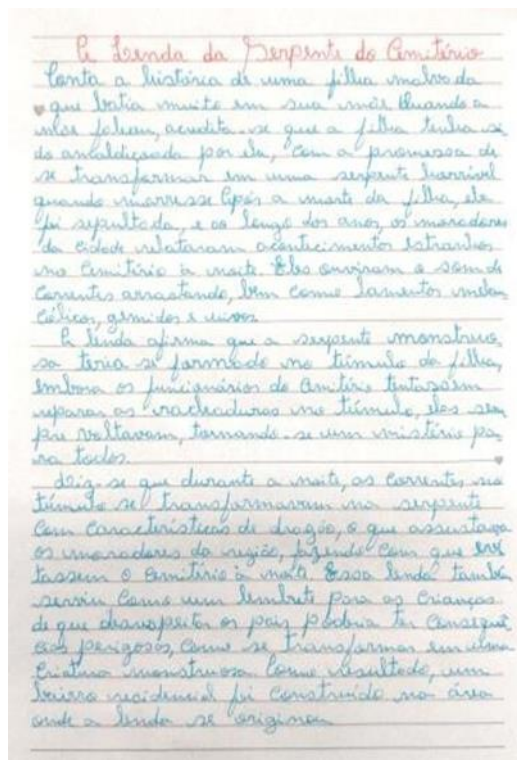 A Lenda da Serpente do Cemitério
Conta a história de uma filha malvada
que batia muito em sua mãe Quando a
mãe faleceu, acredita-se que a filha tenha si
do amaldiçoada por ela, com a promessa de
se transformar em uma serpente horrível
quando morresse Após a morte da filha, ela
foi sepultada, e ao longo dos anos, os moradores
da cidade relataram acontecimentos estranhos
no Cemitério à noite. Eles ouviram o som de
correntes arrastando, bem como lamentos melan
cólicos, gemidos e uivos
A lenda afirma que a serpente monstruo
sa teria se formado no túmulo da filha,
Embora os funcionários do Cemitério tentassem
reparar as rachaduras no túmulo, elas sem
pre voltavam, tornando-se um mistério pa
ra todos.
Diz-se que durante a noite, as correntes no
túmulo se transformavam na serpente
com características de dragão, o que assustava
os moradores da região, fazendo com que evi
tassem o Cemitério à noite. Essa lenda também
serviu como um lembrete para as crianças
de que desrespeitar os pais poderia ter consequên
cias perigosas, como se transformar em uma
criatura monstruosa Como resultado, um
bairro residencial foi construído na área
onde a lenda se originou